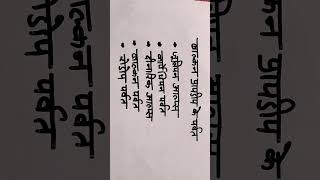 बाल्कन प्रायद्वीप के पर्वत
• जूलियन आल्पस
• कार्पेथियन पर्वत
• दीनारिक आल्पस
• बाल्कन पर्वत
• रोडोप पर्वत